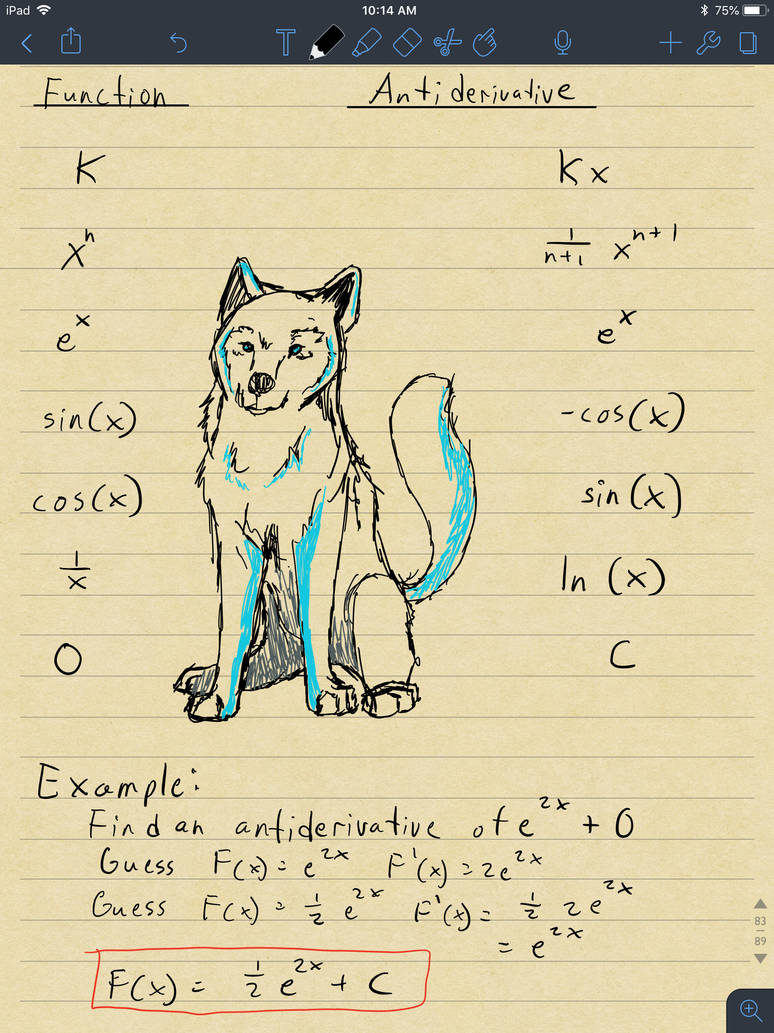 iPad 10:14 AM 75%
T
Function Antiderivative
K Kx
xⁿ 1/(n+1) xⁿ⁺¹
eˣ eˣ
sin(x) -cos(x)
cos(x) sin(x)
1/x ln(x)
0 C
Example:
Find an antiderivative of e²ˣ + 0
Guess F(x) = e²ˣ F'(x) = 2e²ˣ
Guess F(x) = 1/2 e²ˣ F'(x) = 1/2 2e²ˣ
= e²ˣ
F(x) = 1/2 e²ˣ + C
83
89